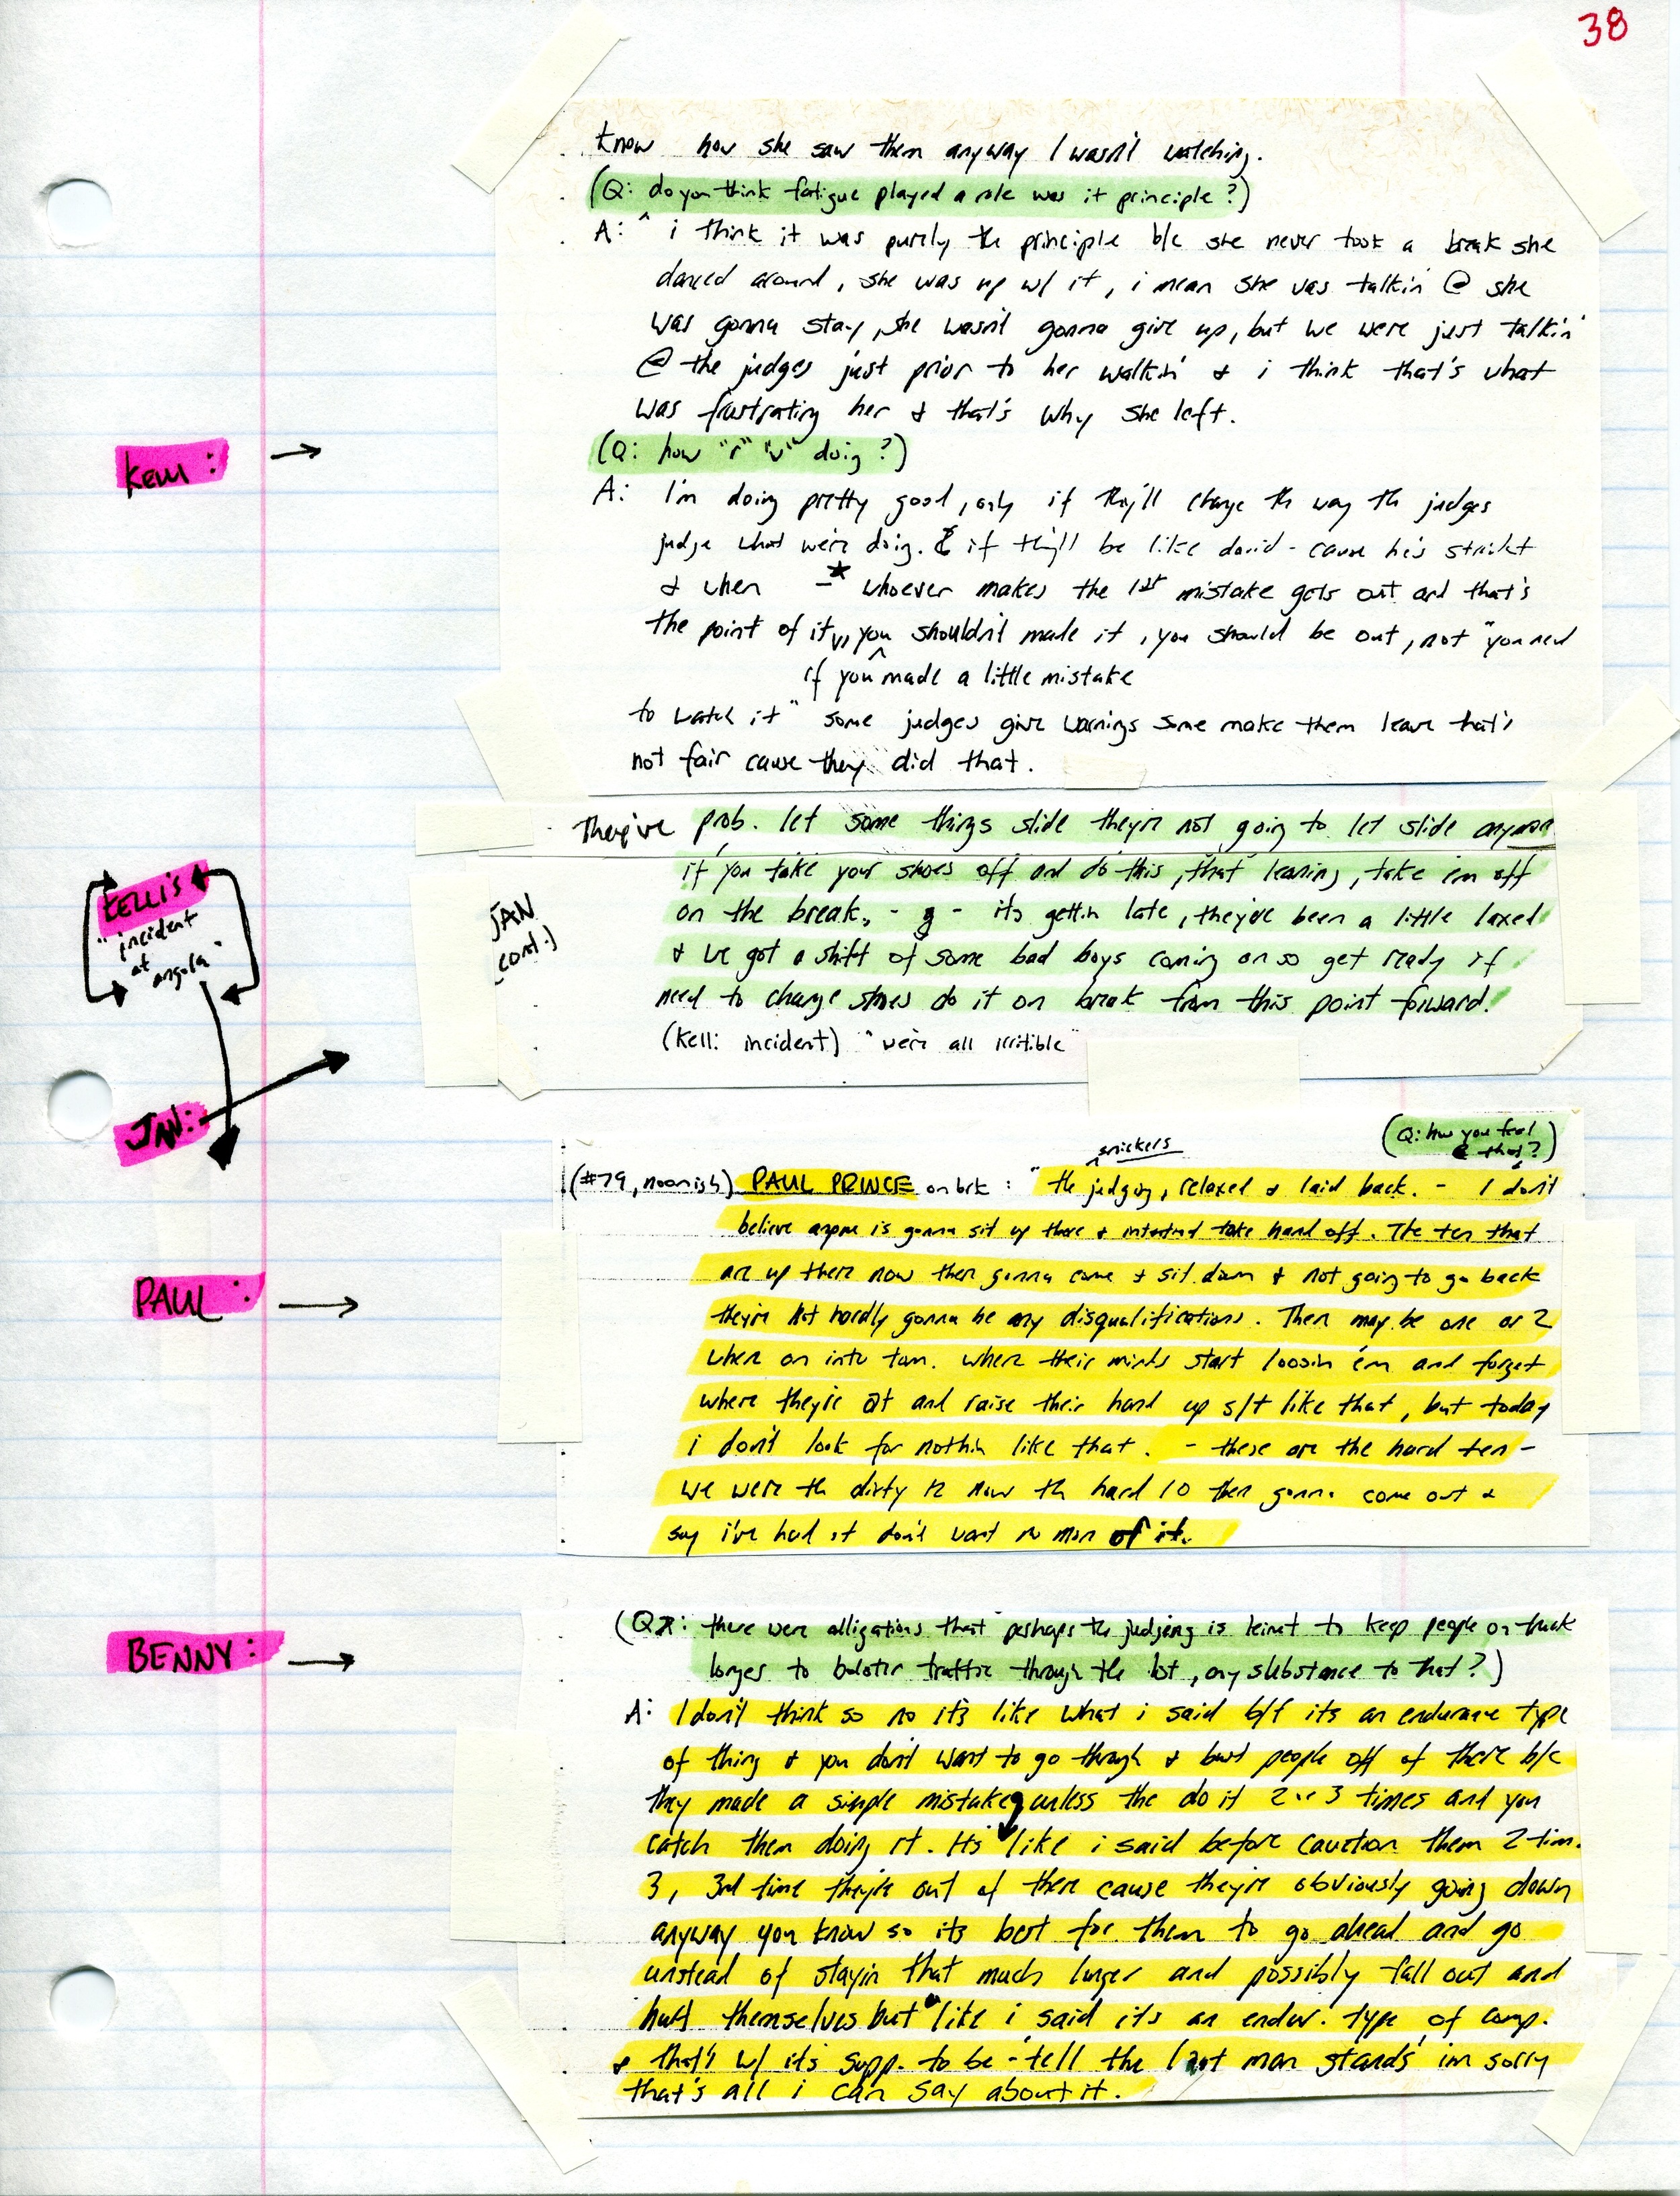 38
know how she saw them anyway I wasn't watching.
(Q: do you think fatigue played a role was it principle?)
A: i think it was purely the principle b/c she never took a break she
danced around, she was up w/ it, i mean she was talkin @ she
was gonna stay, she wasn't gonna give up, but we were just talkin'
@ the judges just prior to her walkin' & i think that's what
was frustrating her & that's why she left.
Kelli:
(Q: how "r" "u" doing?)
A: I'm doing pretty good, only if they'll change th way th judges
judge what we're doing. & if they'll be like david - cause he's strict
& when - * whoever makes the 1st mistake gets out and that's
the point of it, you shouldn't made it, you should be out, not "you need
if you made a little mistake
to watch it" some judges give warnings some make them leave that's
not fair cause they did that.
They've prob. let some things slide they're not going to let slide anymore
JAN
cont.)
if you take your shoes off and do this, that leaning, take em off
on the break, - g - its gettin late, they've been a little laxed
& we got a shift of some bad boys coming on so get ready if
need to change shoes do it on break from this point forward.
(Kell: incident) "we're all irritible"
KELLI'S
"incident
at
angola"
JAN:
snickers
(Q: how you feel
@ that?)
(#79, noonish) PAUL PRINCE on brk: "the judging, relaxed & laid back. - I don't
believe anyone is gonna sit up there & take hand off. The ten that
PAUL:
are up there now then gonna come & sit down & not going to go back
they're not hardly gonna be any disqualifications. Then may be one or 2
when on into tom. where their minds start loosin em and forget
where they're at and raise their hand up s/t like that, but today
i don't look for nothin like that. - these are the hard ten -
we were th dirty 12 now th hard 10 then gonna come out &
say i've had it don't want no mor of it.
BENNY:
(Q: there were alligations that perhaps the judging is leinet to keep people on truck
longer to bolster traffic through the lot, any substance to that?)
A: I don't think so no it's like what i said b/f its an endurance type
of thing & you don't want to go through & bust people off of there b/c
they made a simple mistake, unless the do it 2 or 3 times and you
catch them doing it. Its like i said before caution them 2 tim.
3, 3rd time they're out of there cause they're obviously going down
anyway you know so its best for them to go ahead and go
instead of stayin that much longer and possibly fall out and
hurt themselves but like i said its an endur. type of comp.
& that's w/ it's supp. to be - tell the last man stands im sorry
that's all i can say about it.